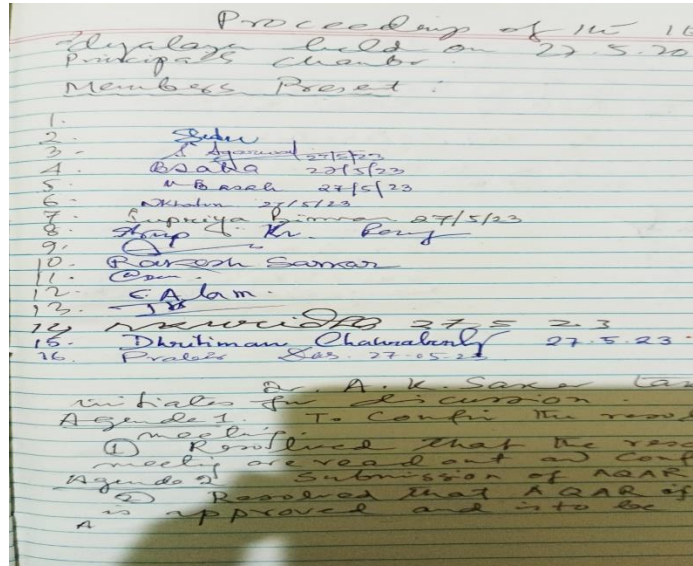 Proceedings of the 16
dyalaya held on 27.5.20
Principal's Chamber.
Members Present :
1.
2.
3. S Agarwal 27/5/23
4. BSAHA 27/5/23
5. 27/5/23
6. NKhatun 27/5/23
7. Supriya Biswas 27/5/23
8. Kr. Roy
9.
10. Rakesh Sarkar
11.
12. S. Alam.
13.
14. 27.5 23
15. Dhritiman Chakraborty 27.5.23
16. Prabir Das. 27-05-23
Dr. A. K. Sarker
initiates for discussion.
Agenda 1. To Confir the resol
meeting
① Resolved that the reso
meetig are read out an conf
Agenda 2 Submission of AQAR
② Resolved that AQAR of
is approved and is to be
A